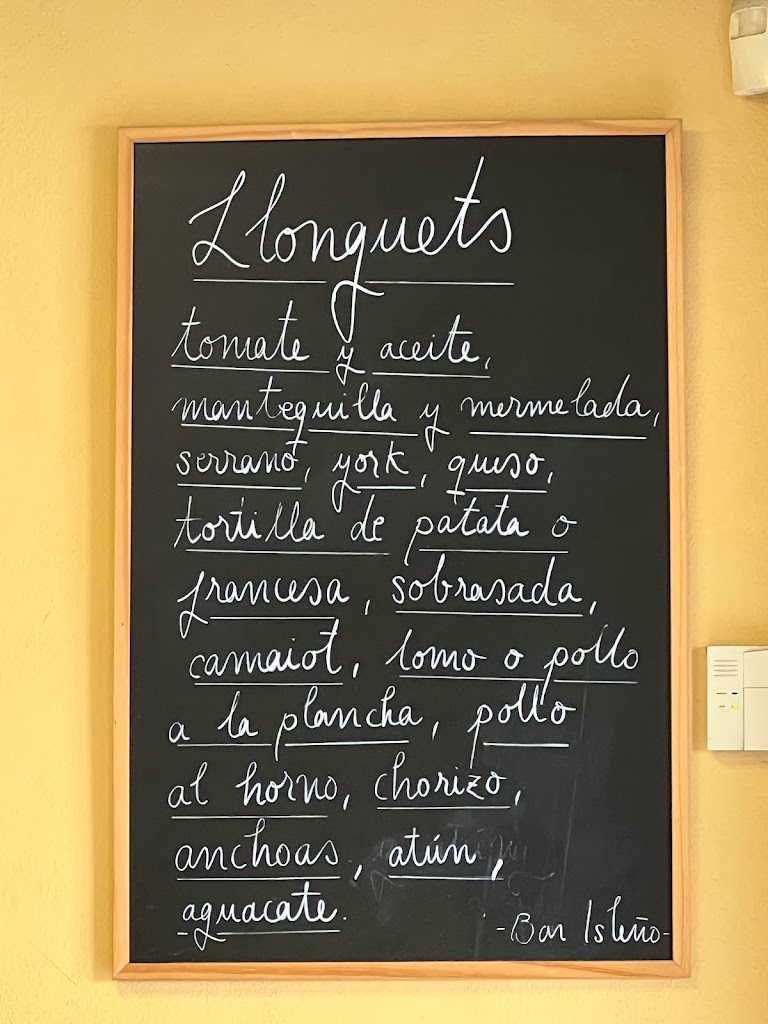 Llonguets
tomate y aceite,
mantequilla y mermelada,
serrano, york, queso,
tortilla de patata o
francesa, sobrasada,
camaiot, lomo o pollo
a la plancha, pollo
al horno, chorizo,
anchoas, atún,
aguacate.
-Bar Isleño-